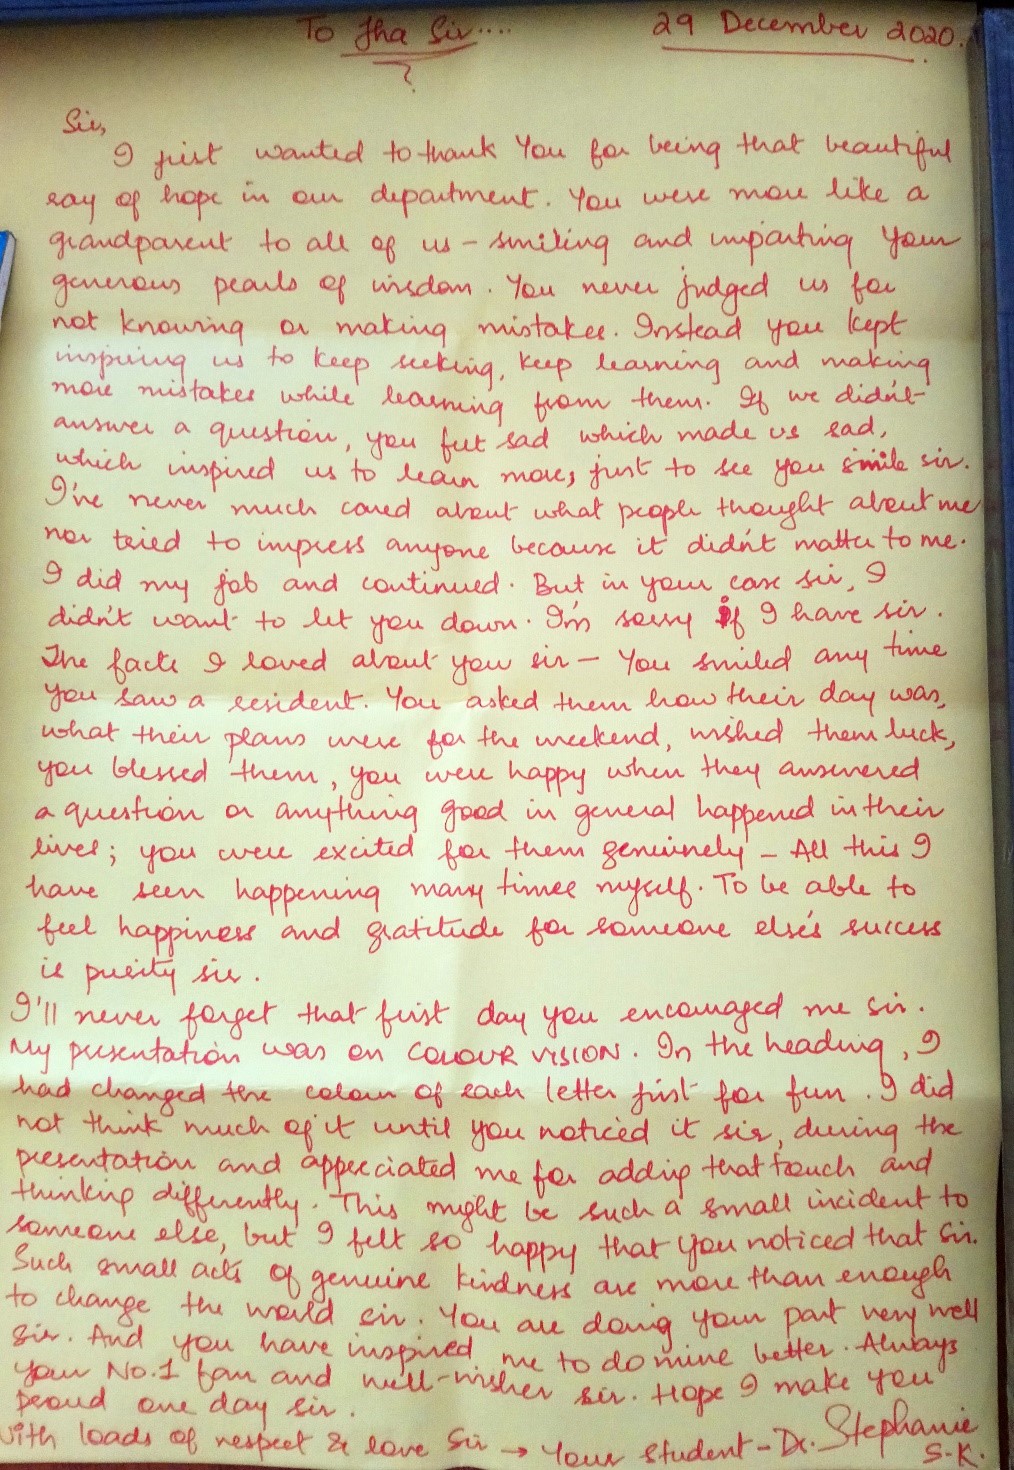 To Jha Sir.... 29 December 2020.
Sir,
I just wanted to thank You for being that beautiful
ray of hope in our department. You were more like a
grandparent to all of us - smiling and imparting your
generous pearls of wisdom. You never judged us for
not knowing or making mistakes. Instead you kept
inspiring us to keep seeking, keep learning and making
more mistakes while learning from them. If we didn't
answer a question, you felt sad which made us sad,
which inspired us to learn more, just to see you smile sir.
I've never much cared about what people thought about me
nor tried to impress anyone because it didn't matter to me.
I did my job and continued. But in your case sir, I
didn't want to let you down. I'm sorry if I have sir.
The facts I loved about you sir - You smiled any time
you saw a resident. You asked them how their day was,
what their plans were for the weekend, wished them luck,
you blessed them, you were happy when they answered
a question or anything good in general happened in their
lives; you were excited for them genuinely - All this I
have seen happening many times myself. To be able to
feel happiness and gratitude for someone else's success
is purity sir.
I'll never forget that first day you encouraged me sir.
My presentation was on COLOUR VISION. In the heading, I
had changed the colour of each letter just for fun. I did
not think much of it until you noticed it sir, during the
presentation and appreciated me for adding that touch and
thinking differently. This might be such a small incident to
someone else, but I felt so happy that you noticed that sir.
Such small acts of genuine kindness are more than enough
to change the world sir. You are doing your part very well
sir. And you have inspired me to do mine better. Always
your No.1 fan and well-wisher sir. Hope I make you
proud one day sir.
With loads of respect & love Sir → Your student - Dr. Stephanie
S.K.